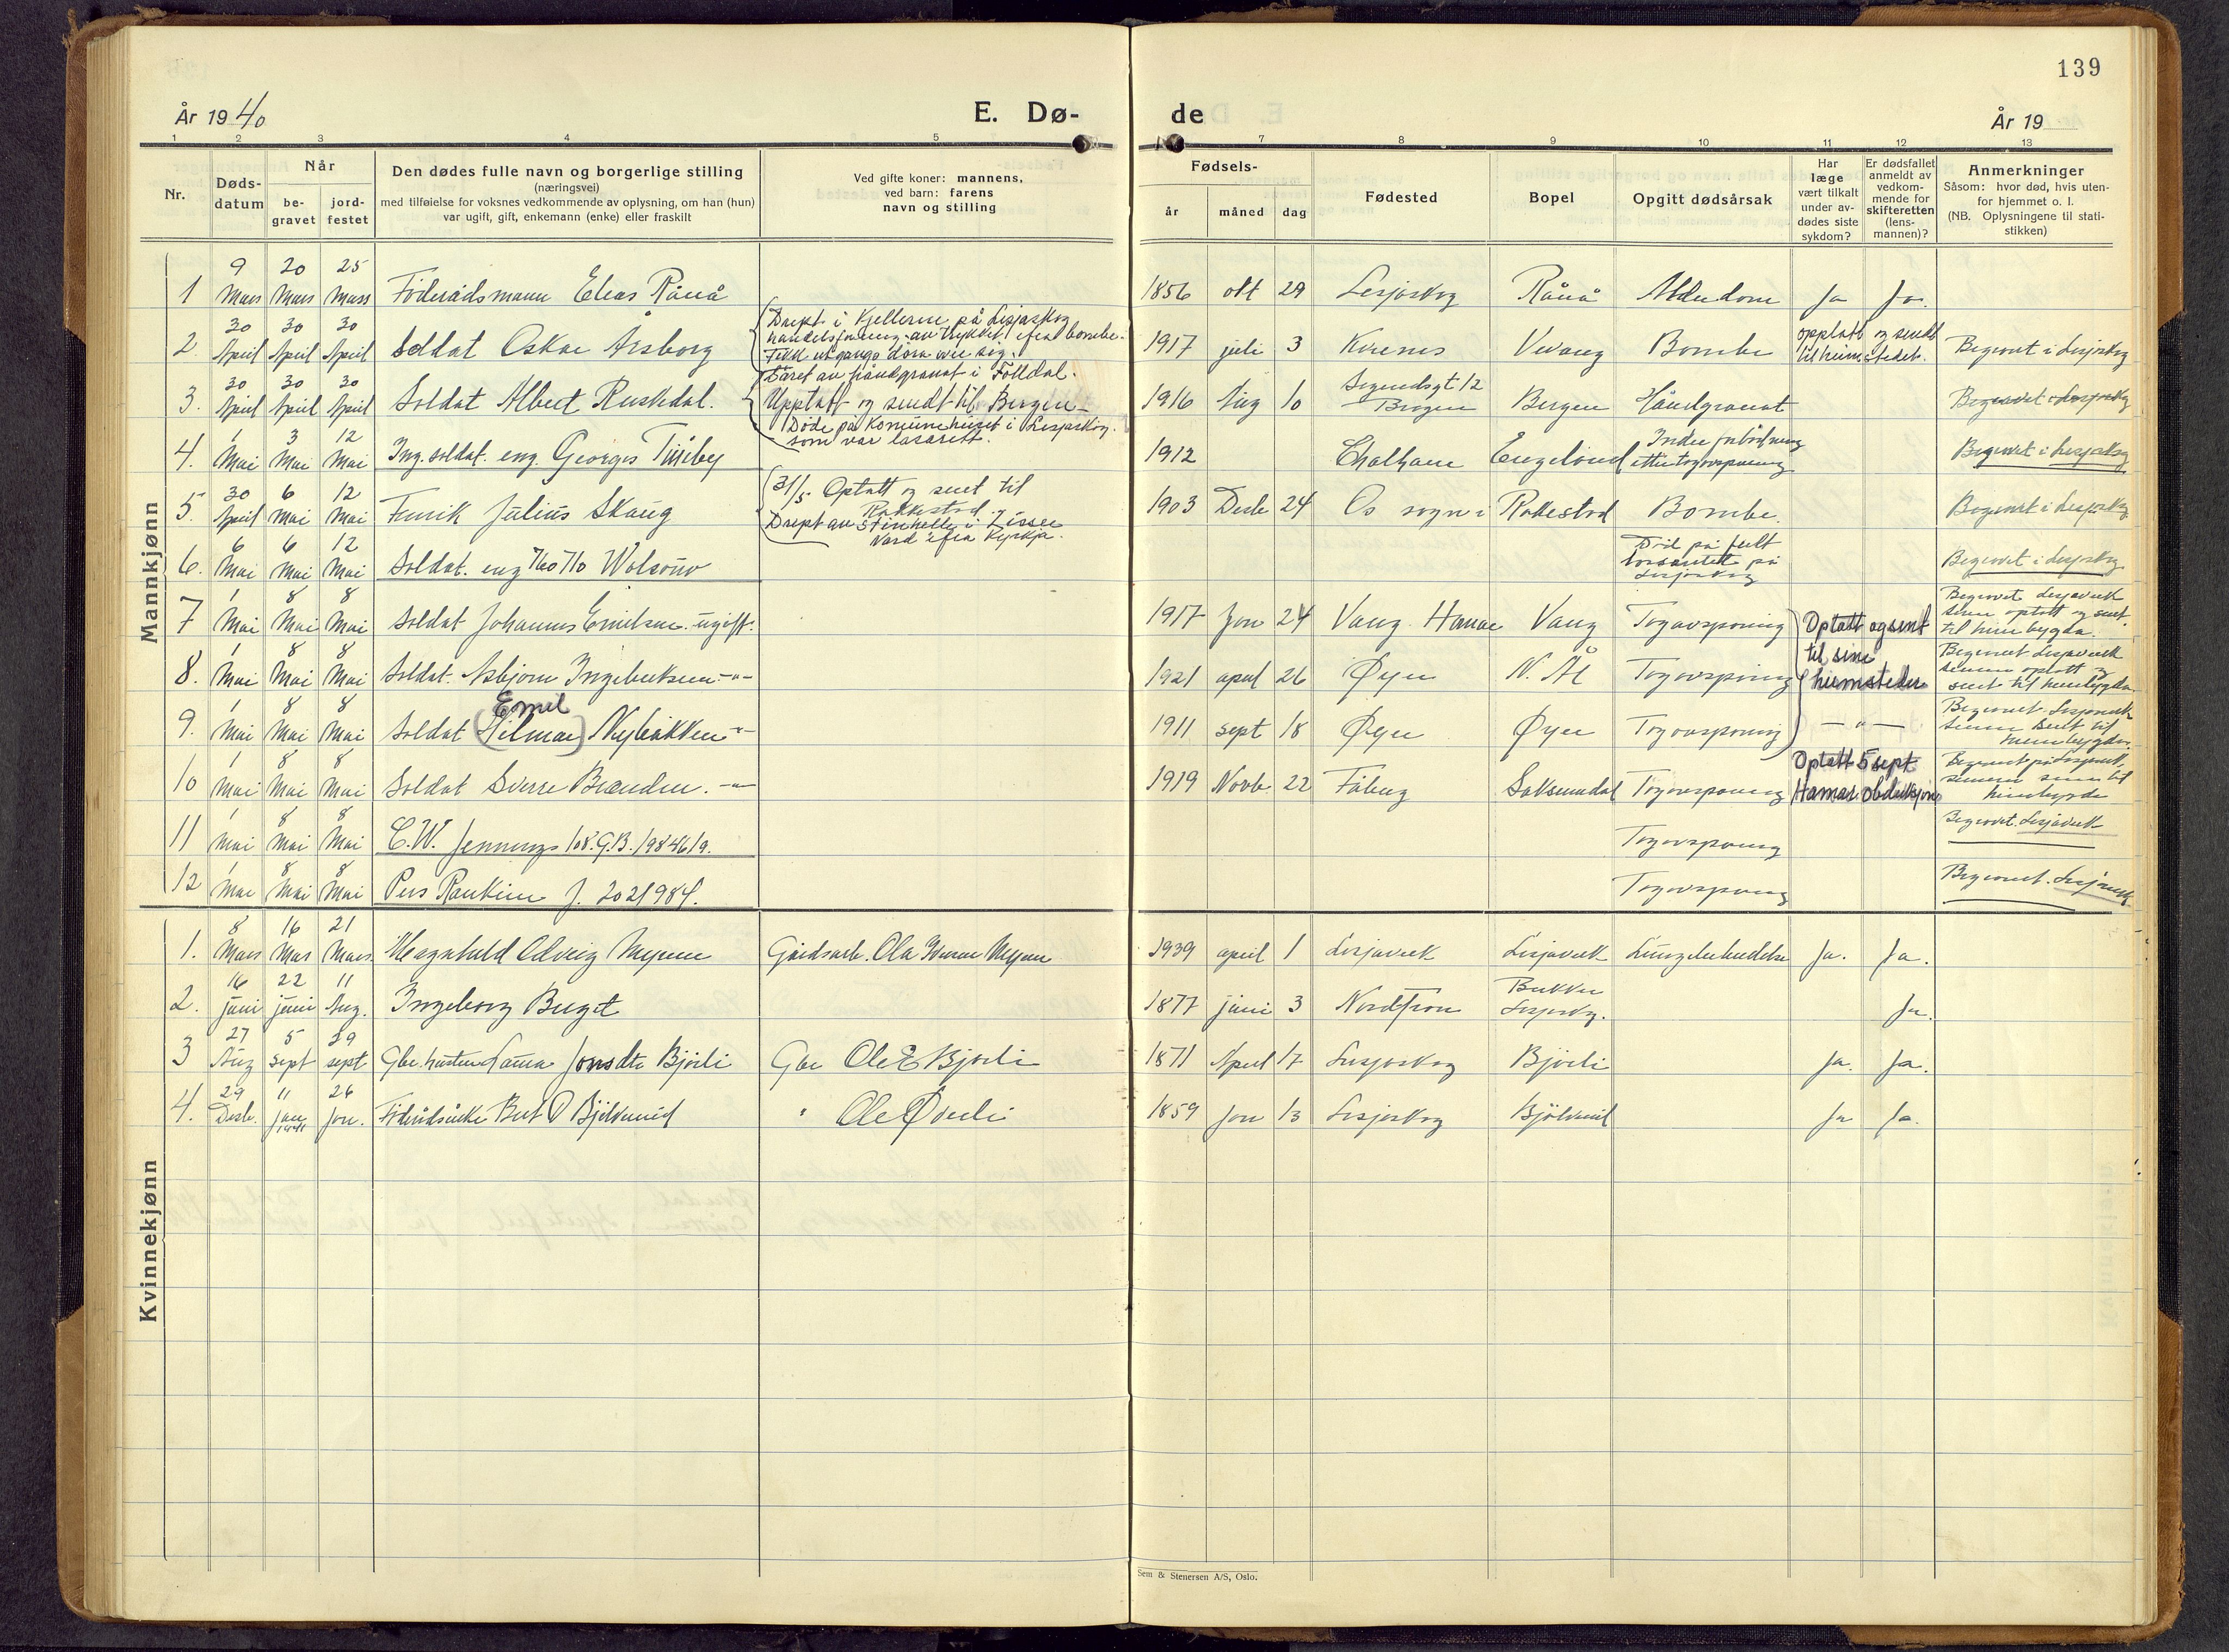 139
År 1940
E. Dø-
de
År 19
1 2 3 4 5 7 8 9 10 11 12 13
Nr.
Døds-
datum
Når
be-
gravet
jord-
festet
Den dødes fulle navn og borgerlige stilling
(næringsvei)
med tilføielse for voksnes vedkommende av oplysning, om han (hun)
var ugift, gift, enkemann (enke) eller fraskilt
Ved gifte koner: mannens,
ved barn: farens
navn og stilling
Fødsels-
år måned dag
Fødested
Bopel
Opgitt dødsårsak
Har
læge
vært tilkalt
under av-
dødes siste
sykdom?
Er dødsfallet
anmeldt av
vedkom-
mende for
skifteretten
(lens-
mannen)?
Anmerkninger
Såsom: hvor død, hvis uten-
for hjemmet o. l.
(NB. Oplysningene til stati-
stikken)
Mannkjønn
1 9 Mars 20 Mars 25 Mars Föderådsmann Elias Rånå 1856 okt 29 Lesjaskog Rånå Alderdom Ja Ja.
2 30 April 30 April 30 April Soldat Oskar Årsborg
Drept i Kjelleren på Lesjaskog
handelsforening av trykket ifra bombe.
Fekk utgangsdöra over seg.
1917 juli 3 Kvernes Vevang Bombe
opptatt og sendt
til heimstedet.
Begravet i Lesjaskog
3. 30 April 30 April 30 April Soldat Albert Ruskdal.
Såret av håndgranat i Folldal.
Upptatt og sendt til Bergen
Döde på Kommunehuset i Lesjaskog.
som var lasarett.
1916 Aug 10 Bergen Bergen Håndgranat Begravet i Lesjaskog
4. 1 Mai 3 Mai 12 Mai Ing. soldat. eng. Georges 1912 Chatham England
etter togavsporing
Begravet i Lesjaskog
5. 30 April 6 Mai 12 Mai Fenrik Julius Skaug
31/5 Optatt og sent til
Rakkestad
Drept av steinhelle i
Nord ifra Kyrkja.
1903 Desb 24 Os sogn i Rakestad Bombe. Begravet i Lesjaskog
6. 6 Mai 6 Mai 12 Mai Soldat. eng
Död på felt
lasarettet på
Lesjaskog
Begravet i Lesjaskog
7 1 Mai 8 Mai 8 Mai Soldat Johannes Emilsen. ugift. 1917 Jan 24 Vang Hamar Vang Togavsporing
Optatt og sent
til sine
heimsteder
Begravet Lesjaverk
senere optatt og sent
til heimbygda.
8. 1 Mai 8 Mai 8 Mai Soldat. Asbjørn Ingebriksen -"- 1921 april 26 Øyer N. Ål Togavsporing
Begravet Lesjaverk
senere optatt og
sent til heimbygda
9. 1 Mai 8 Mai 8 Mai Soldat (Hilmar) Emil Nybakken -"- 1911 sept 18 Øyer Øyer Togavsporing - " -
Begravet Lesjaverk
senere sent til
heimbygda.
10 1 Mai 8 Mai 8 Mai Soldat Sverre Brænden. -"- 1919 Novb. 22 Fåberg Saksumdal Togavsporing
Optatt 5 sept
Hamar obduksjon
senere sent til
heimbygda
11 1 Mai 8 Mai 8 Mai C.W. Jennings 108. G.B. 198461a. Togavsporing Begravet. Lesjaverk
12 1 Mai 8 Mai 8 Mai Pers Rankine J. 2021984. Togavsporing Begravet. Lesjaverk
Kvinnekjønn
1. 8 Mars 16 Mars 21 Mars Magnhild Odveig Myren Gårdsarb. Ola Iverson Myren 1939 april 1 Lesjaverk Lesjaverk Lungebetendelse Ja. Ja.
2. 16 juni 22 juni 11 Aug. Ingeborg 1877 juni 3 Nordfron
Bekken
Lesjaskog.
Ja.
3 27 Aug 5 sept 29 sept Gbr. hustru Laura Jonsdtr Bjorli Gbr Ole E Bjorli 1871 April 17 Lesjaskog Bjorli Ja. Ja.
4. 29 Desb. 11 jan 1941 26 Jan. Föderådsenke Brit O Bjölverud " Ole Øverli 1859 Jan 13 Lesjaskog Bjölverud Ja Ja.
Sem & Stenersen A/S, Oslo.